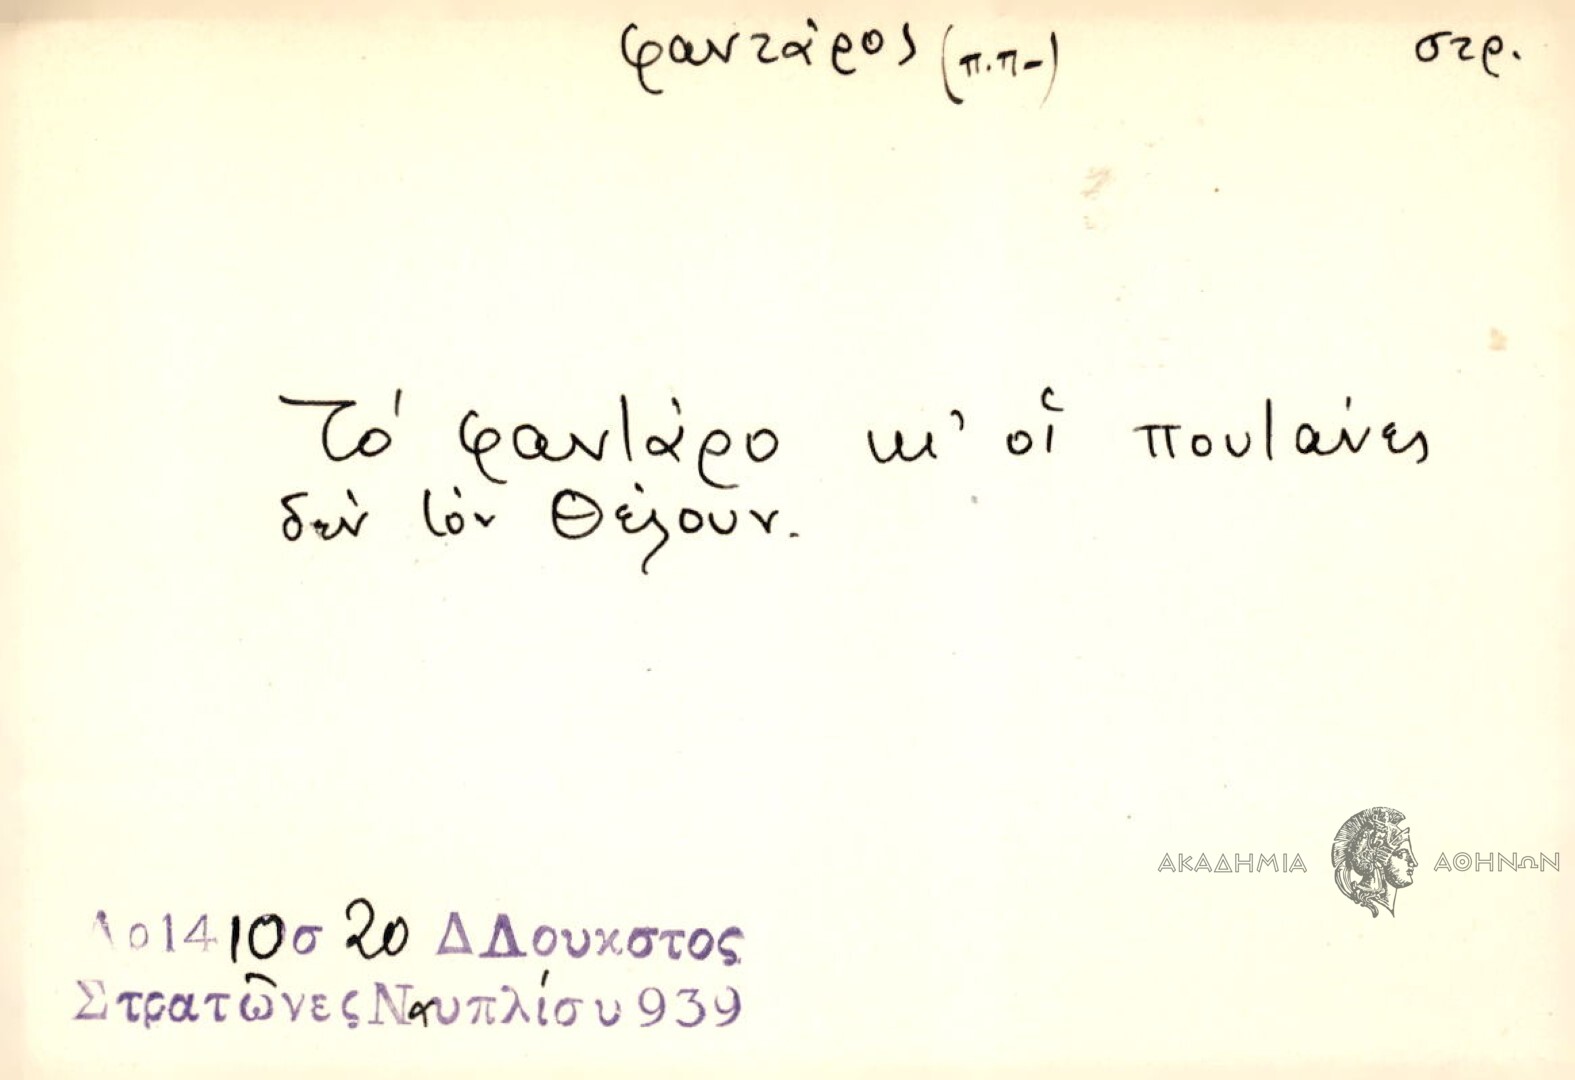 φαντάρος (π.π-) στρ.
Τὸ φαντάρο κι' οἱ πουτάνες
δὲν τὸν θέλουν.
Λο1410σ 20 Δ Λουκστος
Στρατῶνες Ναυπλίου 939
ΑΚΑΔΗΜΙΑ ΑΘΗΝΩΝ